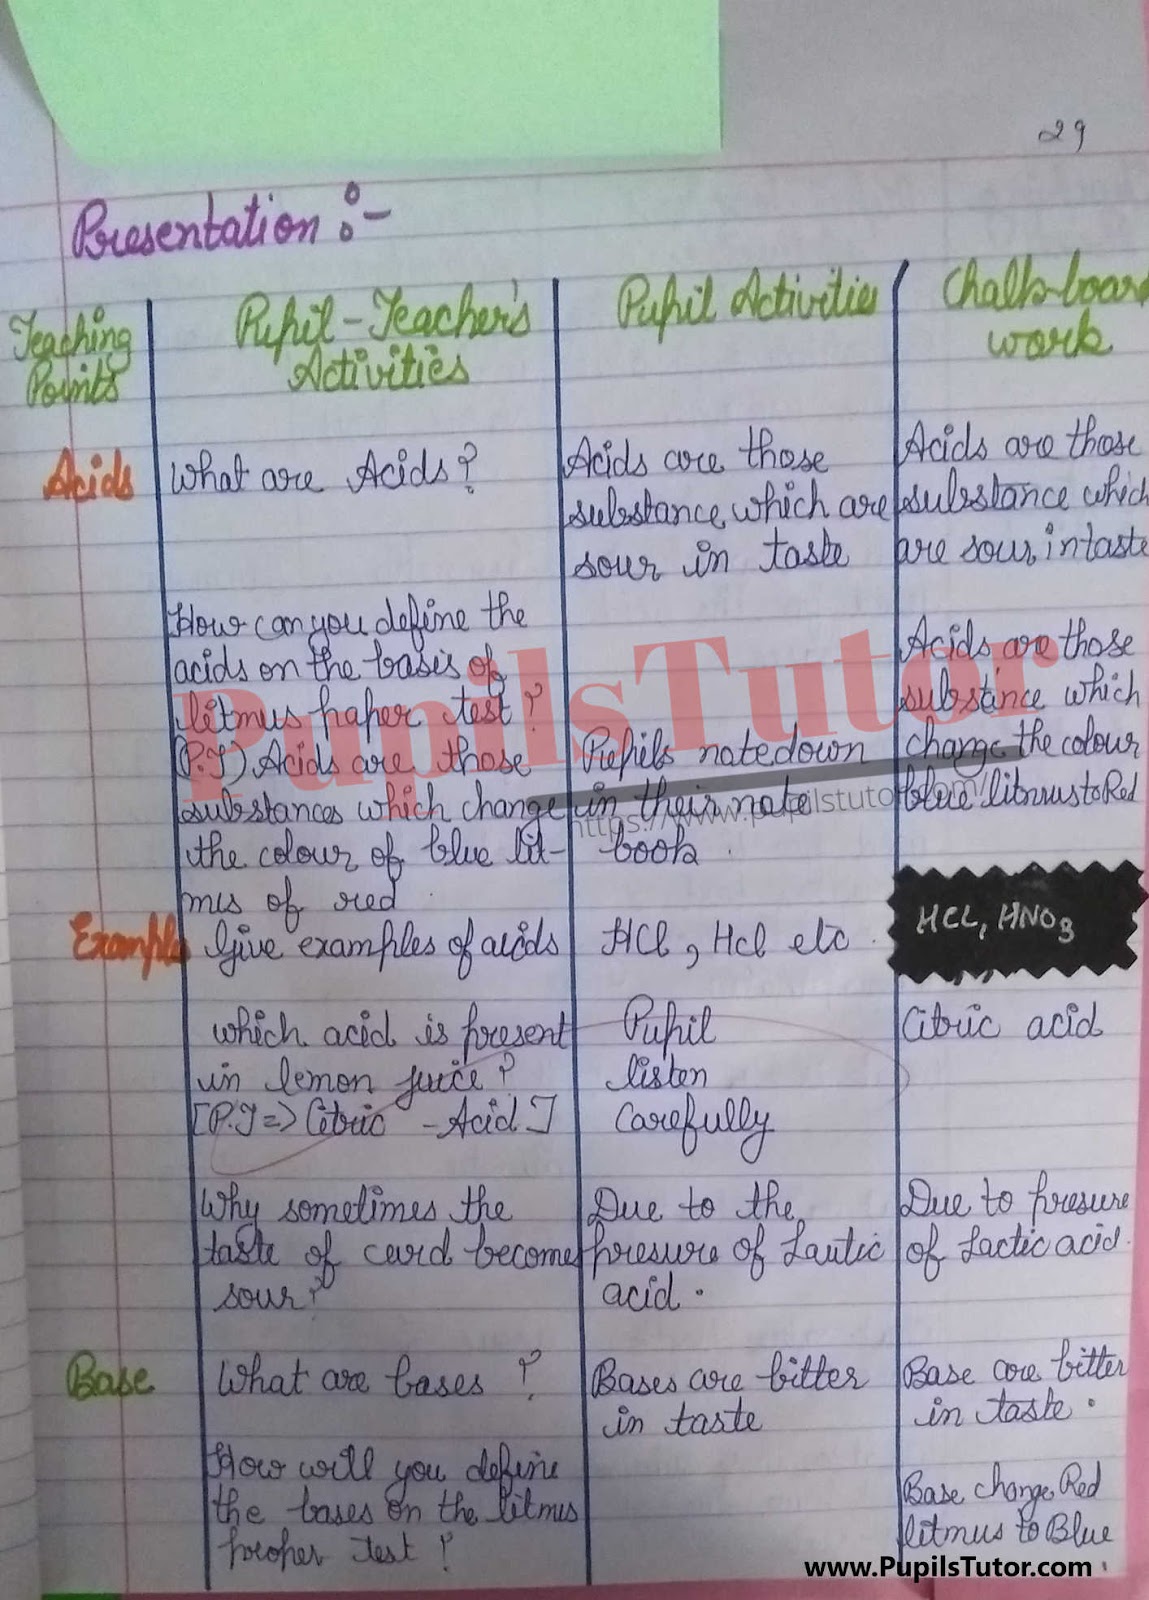 29
Presentation :-
Teaching
Points
Pupil-Teacher's
Activities
Pupil Activities
Chalk-board
work
Acids
What are Acids?
Acids are those
substance which are
sour in taste
Acids are those
substance which
are sour in taste
How can you define the
acids on the basis of
litmus paper test?
(P.T) Acids are those
substances which change
the colour of blue lit-
mus of red
Pupils note down
in their note
book.
Acids are those
substance which
change the colour
blue litmus to Red
Example
Give examples of acids
HCl, Hcl etc.
HCL, HNO3
which acid is present
in lemon juice?
[P.T => Citric - Acid]
Pupil
listen
carefully
Citric acid
Why sometimes the
taste of curd become
sour?
Due to the
presure of Lautic
acid.
Due to presure
of Lactic acid.
Base
What are bases?
Bases are bitter
in taste
Base are bitter
in taste.
How will you define
the bases on the litmus
proper test?
Base change Red
litmus to Blue.
PupilsTutor
https://www.pupilstutor.com/
www.PupilsTutor.com